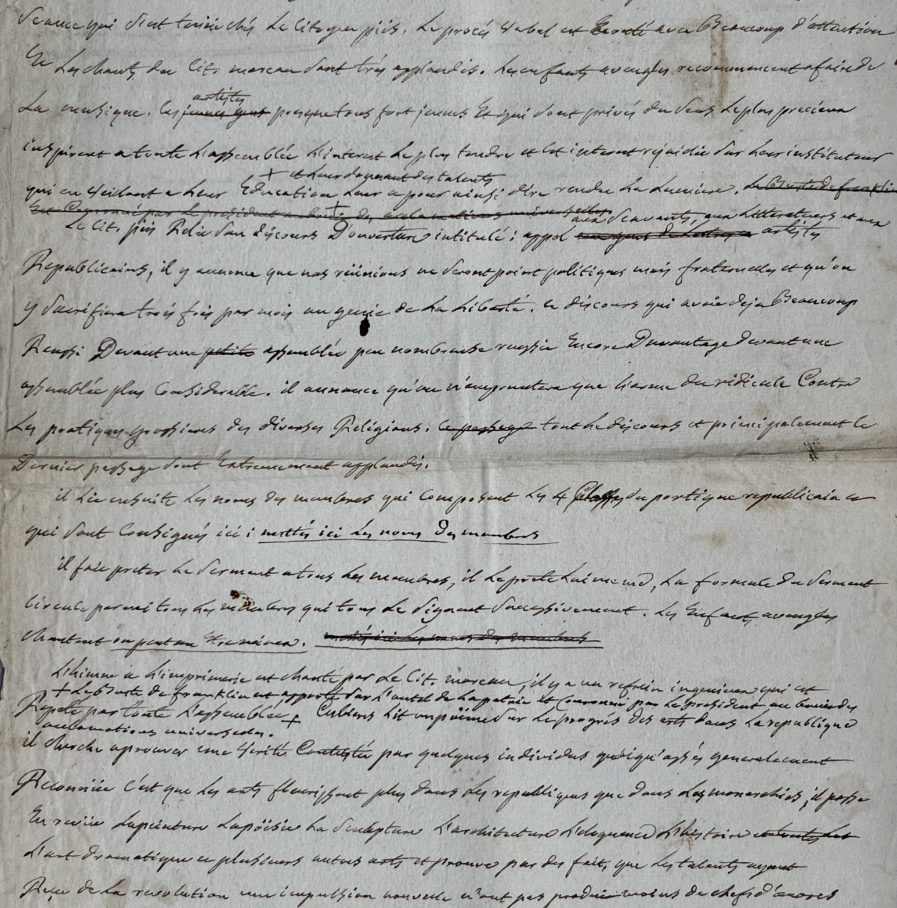 Séance qui s'est tenue chés Le Citoyen piis. Le procés verbal est Ecouté avec Beaucoup d'attention
Et Les chants du Cit. moreau sont très applaudis. Les enfants aveugles recommencent a faire de
La musique. Ces jeunes gens artistes presque tous fort jeunes Et qui sont privés du sens Le plus précieux
inspirent a toute L'assemblée L'interet Le plus tendre et cet interet rejaillit sur Leur instituteur
+ et Leur donnant des talents
qui en veillant a Leur Education Leur a pour ainsi dire rendu La Lumiere. Le Buste de franklin
Est Couronné par Le président au bruit des acclamations universelles
aux Scavants, aux Litterateurs et aux
Le Cit. piis Relit son discours D'ouverture intitulé : appel aux gens de Lettres artistes
Republicains, il y annonce que nos réunions ne seront point politiques mais fraternelles et qu'on
y sacrifiera trois fois par mois au genie de La Liberté. Ce discours qui avoit deja Beaucoup
Reussi Devant une petite assemblée peu nombreuse reussit Encore Davantage devant une
assemblée plus Considerable. il annonce qu'on n'empruntera que L'arme du ridicule Contre
Les pratiques grossieres des diverses Religions. Ce passage tout Le discours et principalement Le
Dernier passage sont Extremement applaudis.
il Lit ensuite Les noms des membres qui composent Les 4 Classes du portique republicain et
qui sont Consignés ici : mettés ici Les noms Des membres
il fait preter Le Serment a tous Les membres, il Le prete Lui meme, La formule du Serment
circule parmi tous Les membres qui tous Le signent successivement. Les Enfants aveugles
chantent un
mettés ici Les noms des membres
L'himne a L'imprimerie est chanté par Le Cit. moreau, il y a un refrain ingenieux qui est
+ Le Buste de franklin est apporté sur L'autel de La patrie et Couronné par Le président au bruit des
Repeté par toute L'assemblée + Cubieres Lit un poëme sur Le progrés des arts dans La republique
acclamations universelles.
il cherche a prouver une verité Contestée par quelques individus quoiqu'assés generalement
Reconnüe c'est que Les arts fleurissent plus dans Les republiques que dans Les monarchies, il passe
En revüe La peinture La poësie La Sculpture L'architecture L'eloquence L'histoire et toutes Les
L'art dramatique et plusieurs autres arts et prouve par des faits que Les talents ayant
Reçu de La revolution une impulsion nouvelle n'ont pas produit moins de chefs d'œuvres